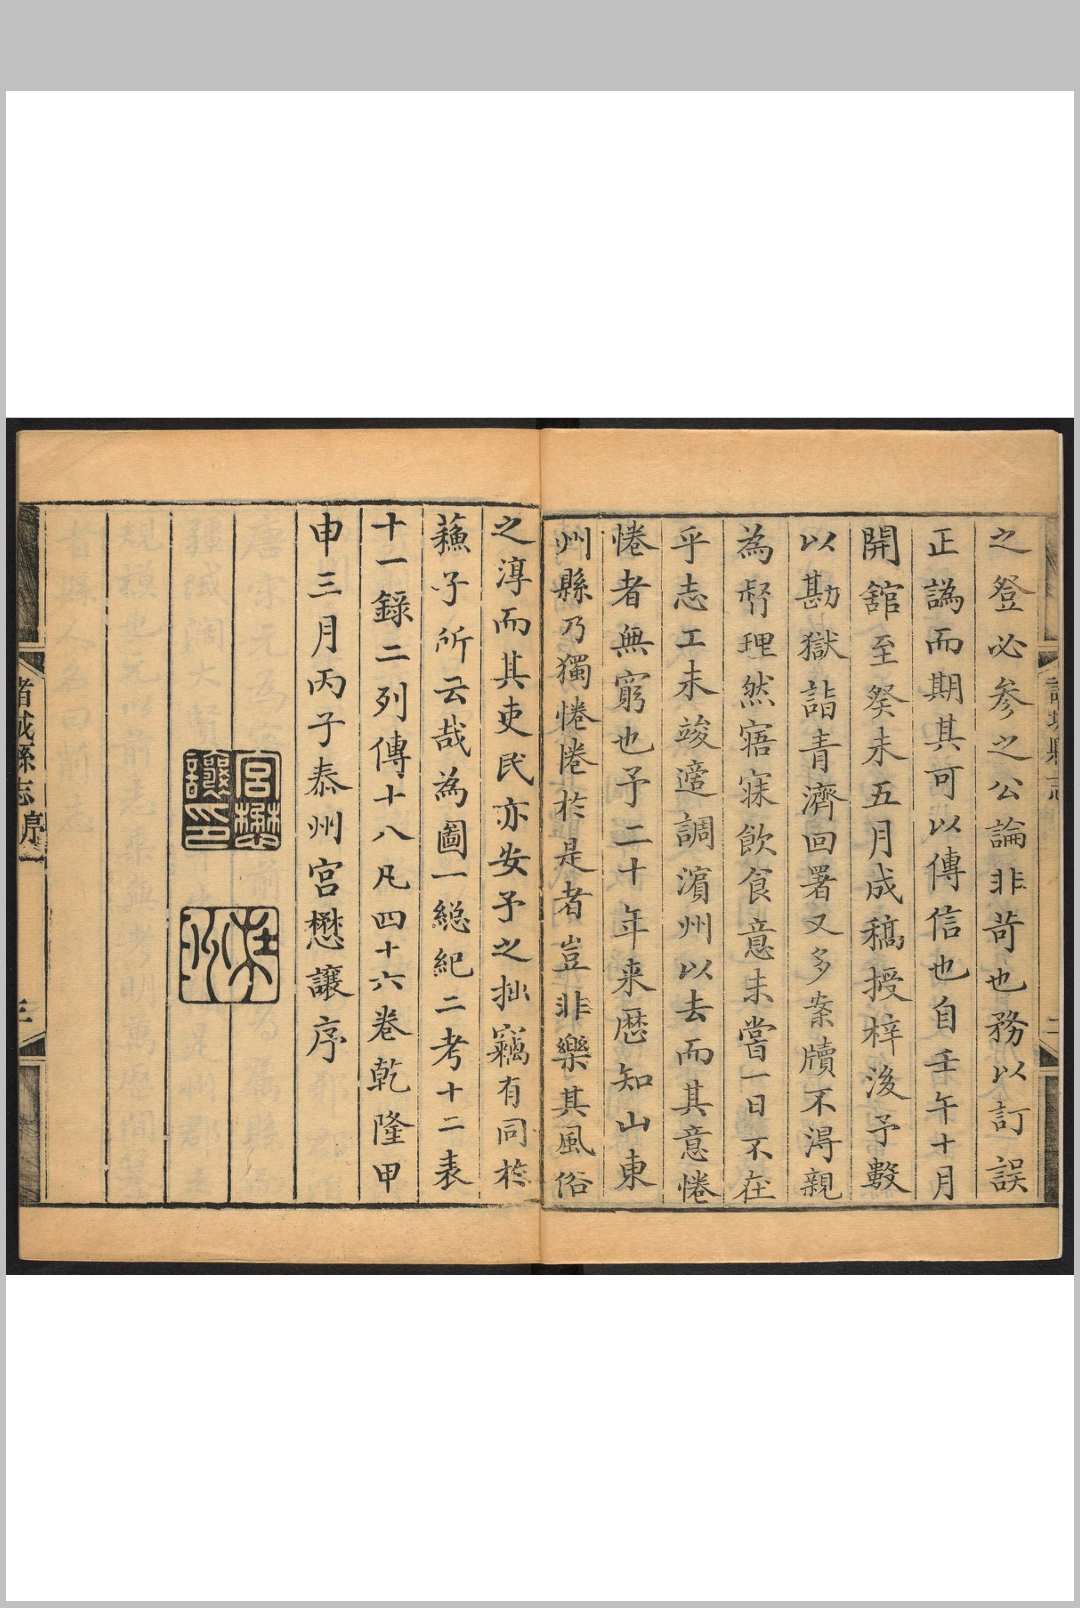 之登必參之公論非苛也務以訂誤
正譌而期其可以傳信也自壬午十月
開舘至癸未五月成稿授梓後予數
以勘獄詣青濟回署又多案牘不得親
為督理然寤寐飲食意未嘗一日不在
乎志工未竣適調濱州以去而其意惓
惓者無窮也予二十年来歷知山東
州縣乃獨惓惓於是者豈非樂其風俗
之淳而其吏民亦安予之拙竊有同於
蘓子所云哉為圖一縂紀二考十二表
十一錄二列傳十八凡四十六卷乾隆甲
申三月丙子泰州宮懋讓序
宮懋
讓印
諸城縣志
序
三